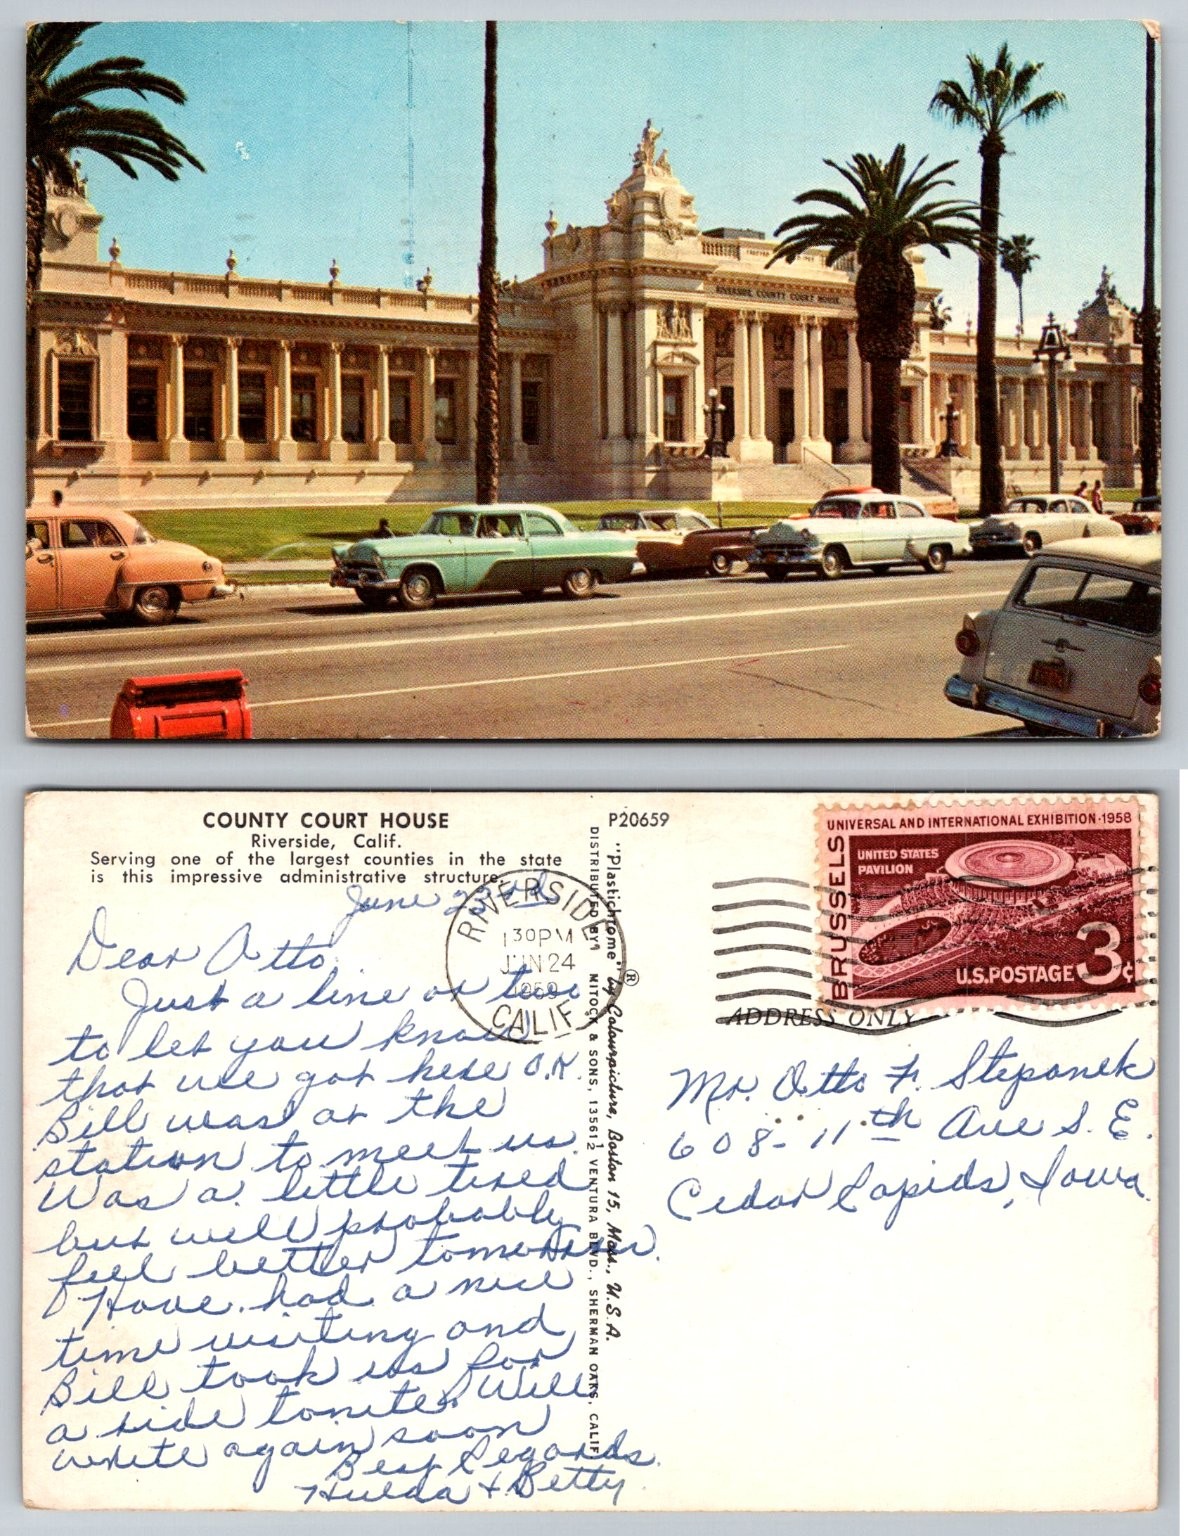 RIVERSIDE COUNTY COURT HOUSE
COUNTY COURT HOUSE
Riverside, Calif.
Serving one of the largest counties in the state
is this impressive administrative structure.
P20659
"Plastichrome" ® by Colourpicture, Boston 15, Mass., U.S.A.
DISTRIBUTED BY MITOCK & SONS, 13561½ VENTURA BLVD., SHERMAN OAKS, CALIF
RIVERSIDE
1 30 PM
JUN 24
1959
CALIF.
UNIVERSAL AND INTERNATIONAL EXHIBITION·1958
UNITED STATES
PAVILION
BRUSSELS
3¢
U.S. POSTAGE
ADDRESS ONLY
June 23rd
Dear Otto,
Just a line or two
to let you know
that we got here O.K.
Bill was at the
station to meet us.
Was a little tired
but will probably
feel better tomorrow.
Have had a nice
time visiting and
Bill took us for
a ride tonite. Will
write again soon
Best Regards.
Hulda + Betty
Mr. Otto F. Stepanek
608-11th Ave S.E.
Cedar Rapids, Iowa.